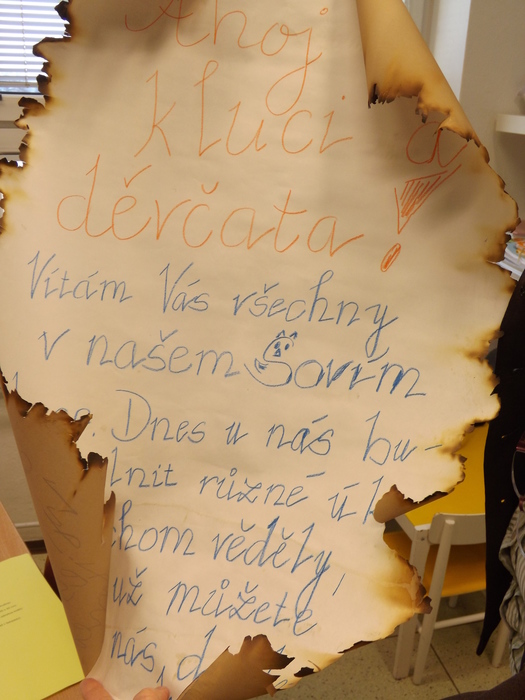 Ahoj
kluci a
děvčata!
Vítám Vás všechny
v našem Sovím
Dnes u nás bu-
lnit různé ú
chom věděly,
už můžete
nás, d